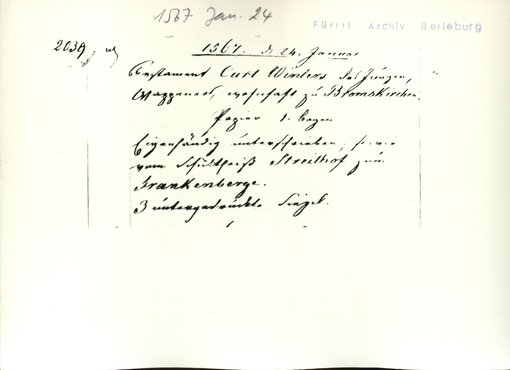 1567 Jan. 24
Fürstl. Archiv Berleburg
2039
1567. d. 24. Januar
Testament Curt Winters des Jungen,
Wappener, wohnhaft zu Bromskirchen.
Papier 1. bogen
Eigenhändig unterschrieben, sowie
vom Schultheiß Streithof zum
Frankenberge.
3 untergedruckte Siegel.